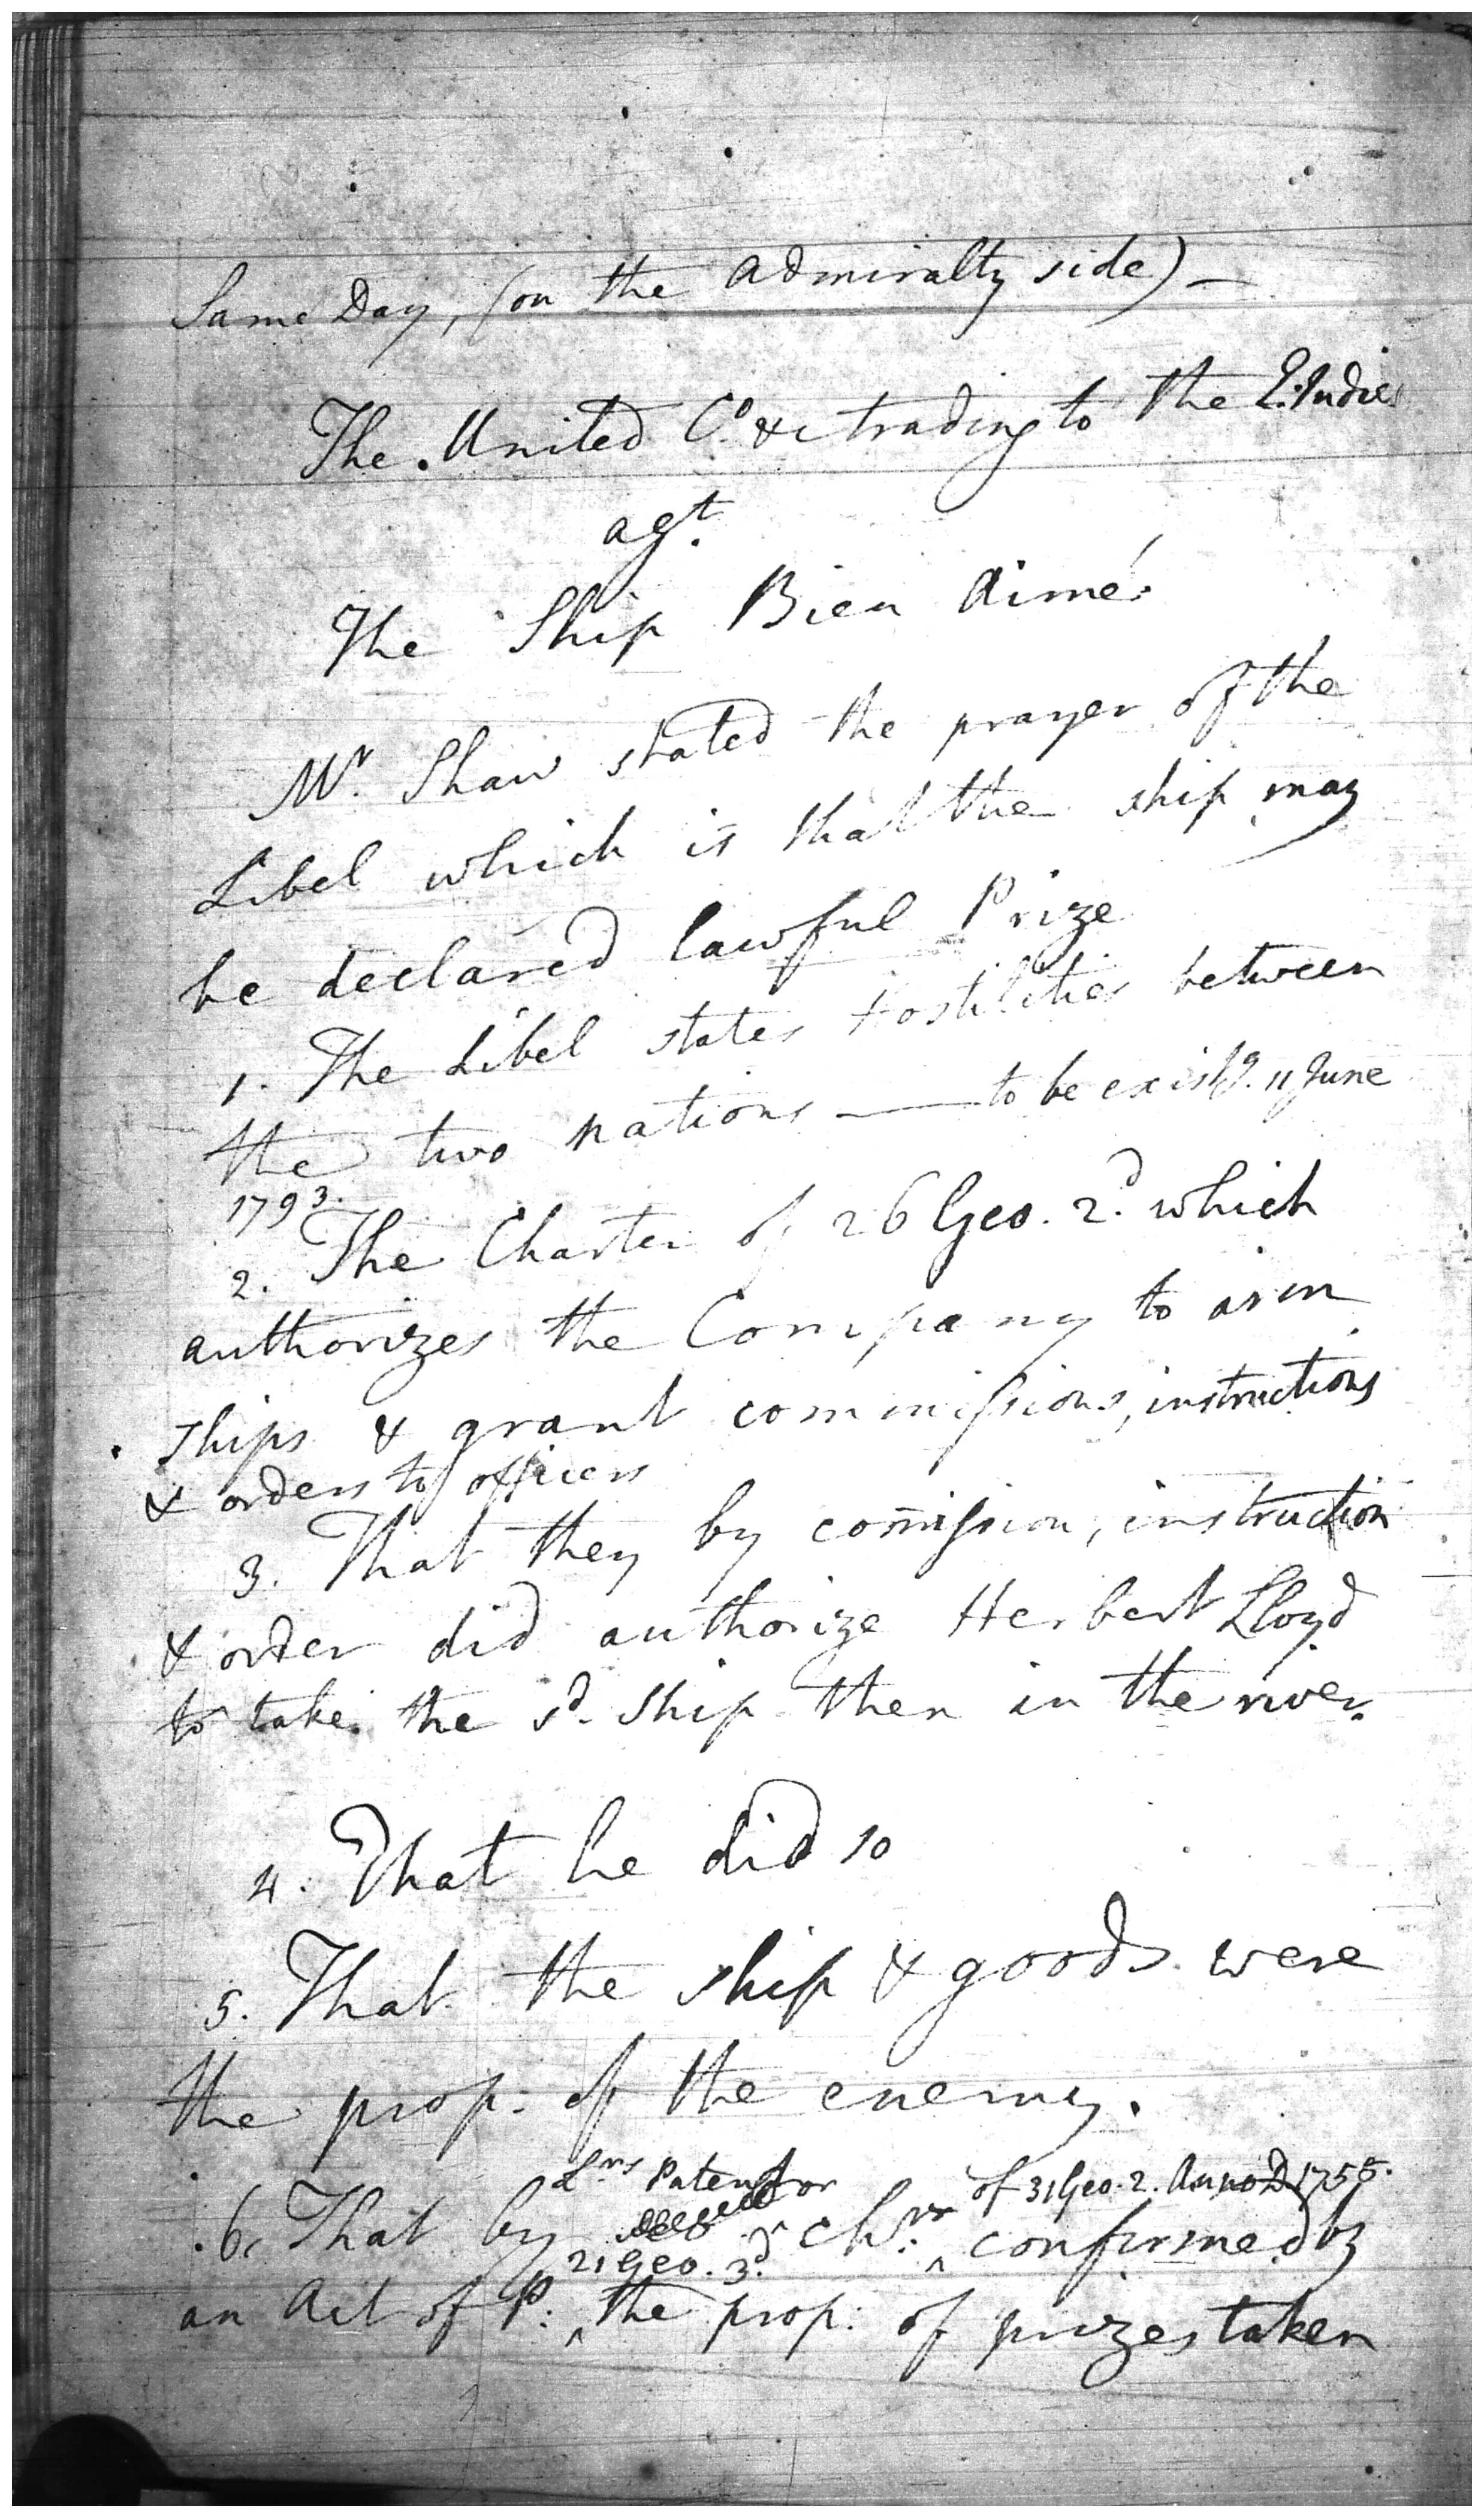 Same Day, (on the Admiralty side) —
The United Co. &c trading to the E. Indies
agt.
The Ship Bien Aimé
Mr. Shaw stated the prayer of the
Libel which is that the ship may
be declared lawful Prize
1. The Libel states Hostilities between
the two nations — to be existg. 11 June
1793.
2. The Charter of 26 Geo. 2d. which
authorizes the Company to arm
ships & grant commissions, instructions
& orders to officers
3. That they by comission, instruction
& order did authorize Herbert Lloyd
to take the sd. Ship then in the river.
4. That he did so
5. That the ship & goods were
the prop: of the enemy.
Lrs Patent or of 31 Geo. 2. Anno D 1758.
6. That by chr: confirmed by
21 Geo. 3d.
an Act of P: the prop: of prizes taken